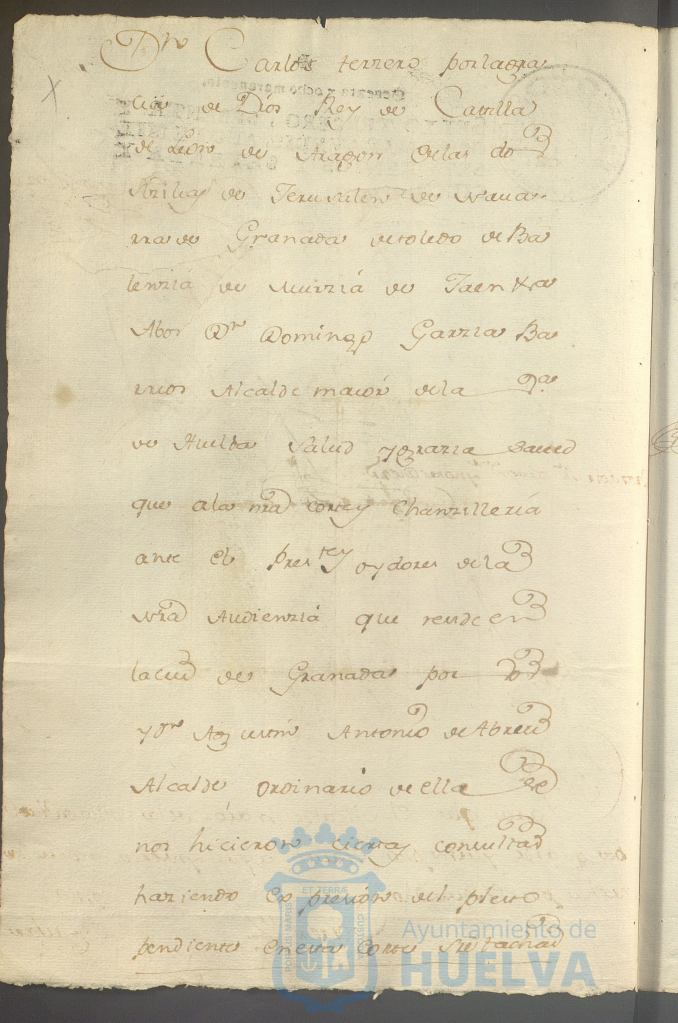 Dn Carlos terzero por la gra
cia de Dios Rey de Castilla
de Leon de Aragon de las dos
Sizilias de Jerusalen de Navar
rra de Granada de toledo de Ba
lenzia de Murzia de Jaen &a
Abos Dn Domingo Garzia Ba
rrios Alcalde maior de la Va
de Huelba Salud y grazia Saved
que ala nra corte y Chanzilleria
ante el Preste y oydores de la
Nra Audienzia que reside en
la ciud de Granada por Vos
y Dn Agustin Antonio de Abreu
Alcalde ordinario de ella se
nos hicieron ciertas consultas
haziendo expresion del pleito
pendiente en esta Corte
Ayuntamiento de
HUELVA